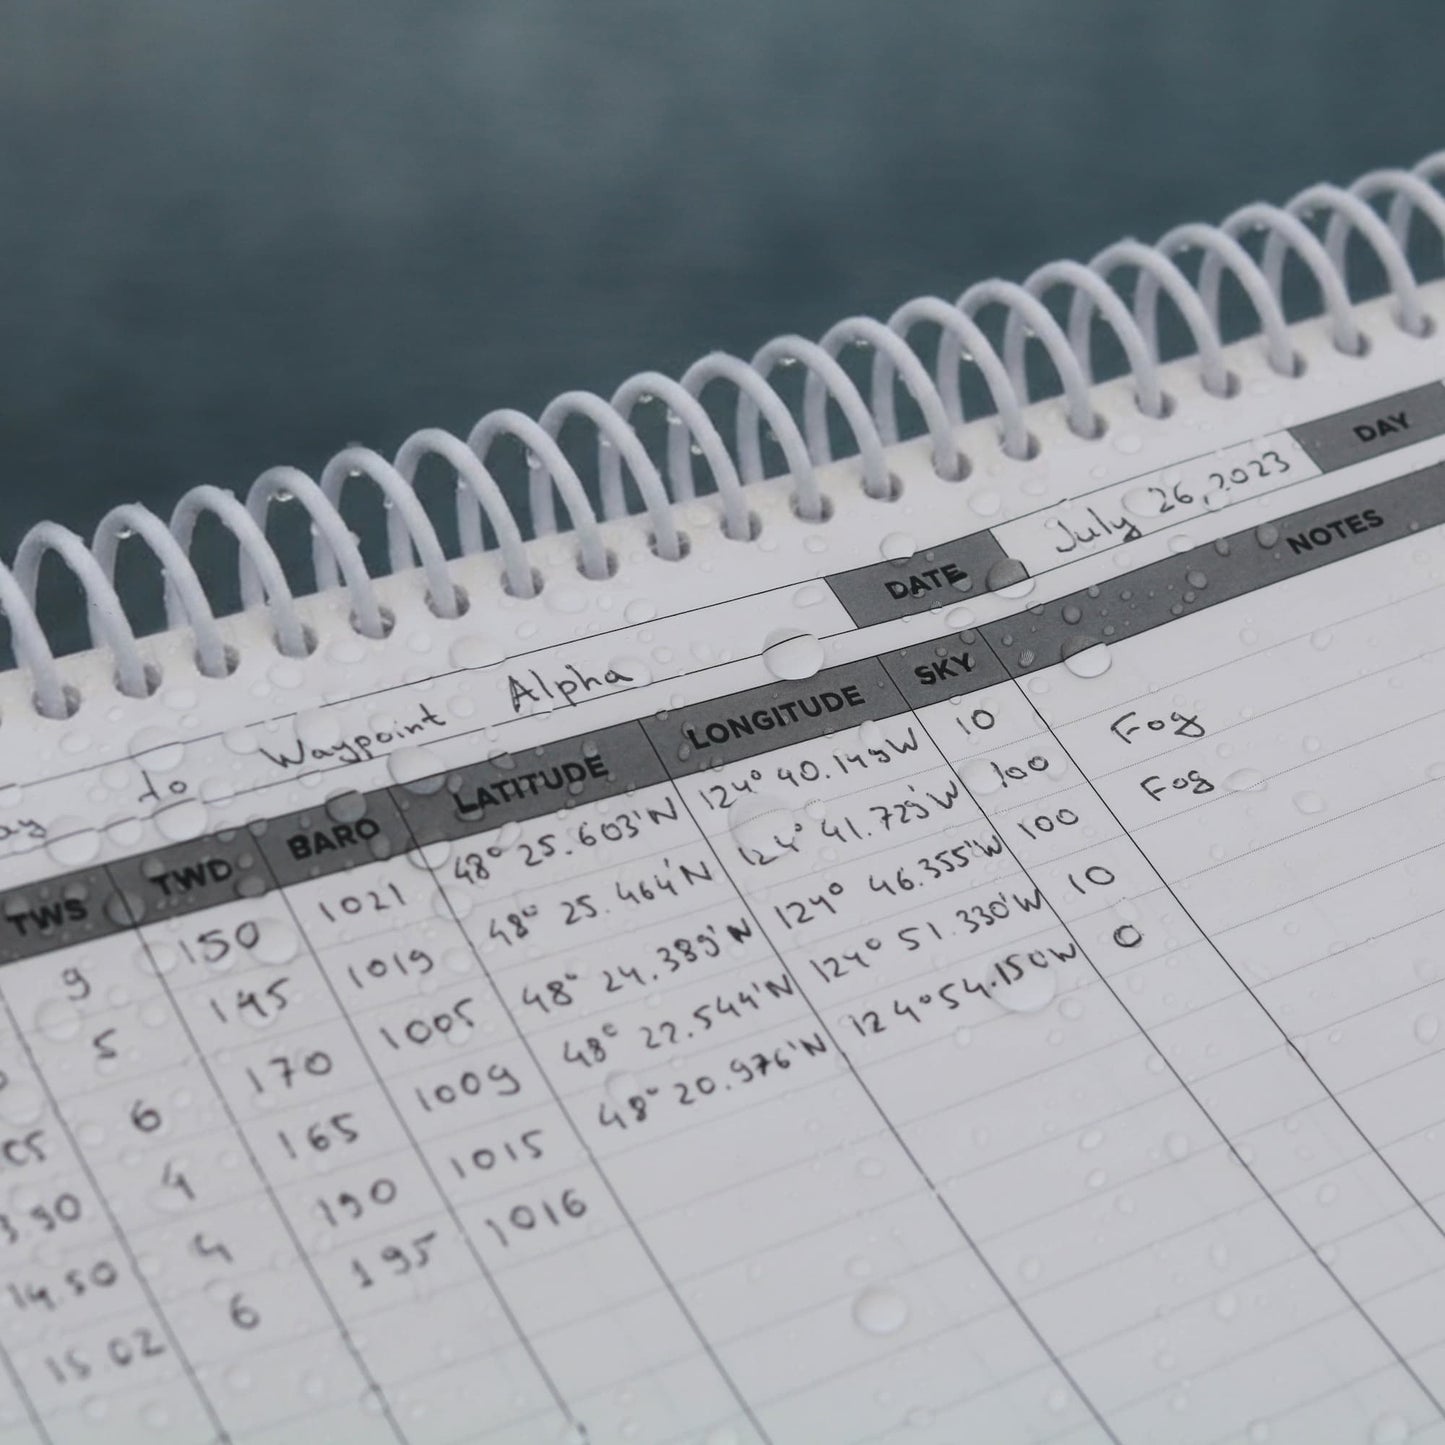 to Waypoint Alpha DATE July 26, 2023 DAY
TWS TWD BARO LATITUDE LONGITUDE SKY NOTES
9 150 1021 48° 25.603'N 124° 40.149W 10
5 145 1019 48° 25.464'N 124° 41.729'W 100 Fog
05 6 170 1005 48° 24.389'N 124° 46.355'W 100 Fog
3.50 4 165 1009 48° 22.544'N 124° 51.330'W 10
14.50 4 190 1015 48° 20.976'N 124° 54.150W 0
15.02 6 195 1016